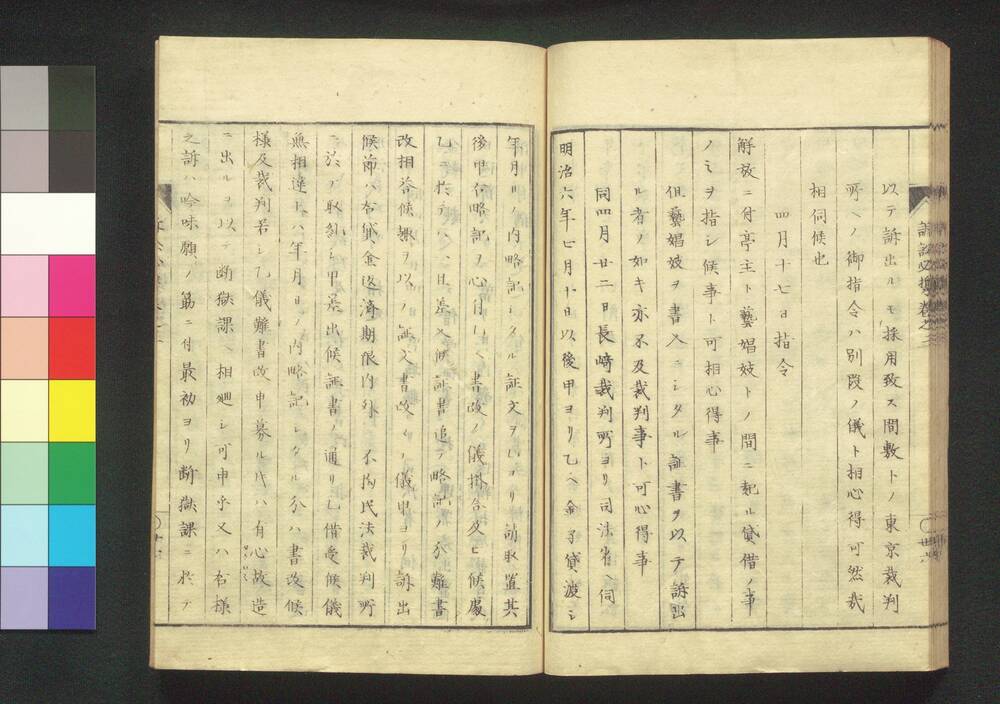 以テ訴出ルモ採用致ス間敷トノ東京裁判
所ヘノ御指令ハ別段ノ儀ト相心得可然哉
相伺候也
四月十七日指令
解放ニ付亭主ト藝娼妓トノ間ニ起ル貸借ノ事
ノミヲ指シ候事ト可相心得事
但藝娼妓ヲ書入ニシタル証書ヲ以テ訴出
ル者ノ如キ亦不及裁判事ト可心得事
同四月廿二日長﨑裁判所ヨリ司法省ヘ伺
明治六年七月十日以後甲ヨリ乙ヘ金子貸渡シ
年月日ノ内略記シタル証文ヲ 請取置其
後甲 略記ノ心付 書改ノ儀掛合及ヒ候處
乙ニ於テハ一旦差入候証書追テ略記ノ分難書
改相答候趣ヲ以ノ証文書改 ノ儀甲ヨリ訴出
候節ハ右貸金返済期限内外ニ不拘民法裁判所
ニ於テ取糺シ甲差出候証書ノ通リ乙借受候儀
無相違上ハ年月日ノ内略記シタル分ハ書改候
様及裁判若シ乙儀難書改申募ル片ハ有心故造
ニ出ルヲ以テ断獄課ヘ相廻シ可申乎又ハ右様
之訴ハ吟味願ノ筋ニ付最初ヨリ断獄課ニ於テ